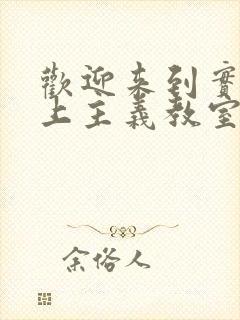 歡迎来到實
上主義教室
余俗人